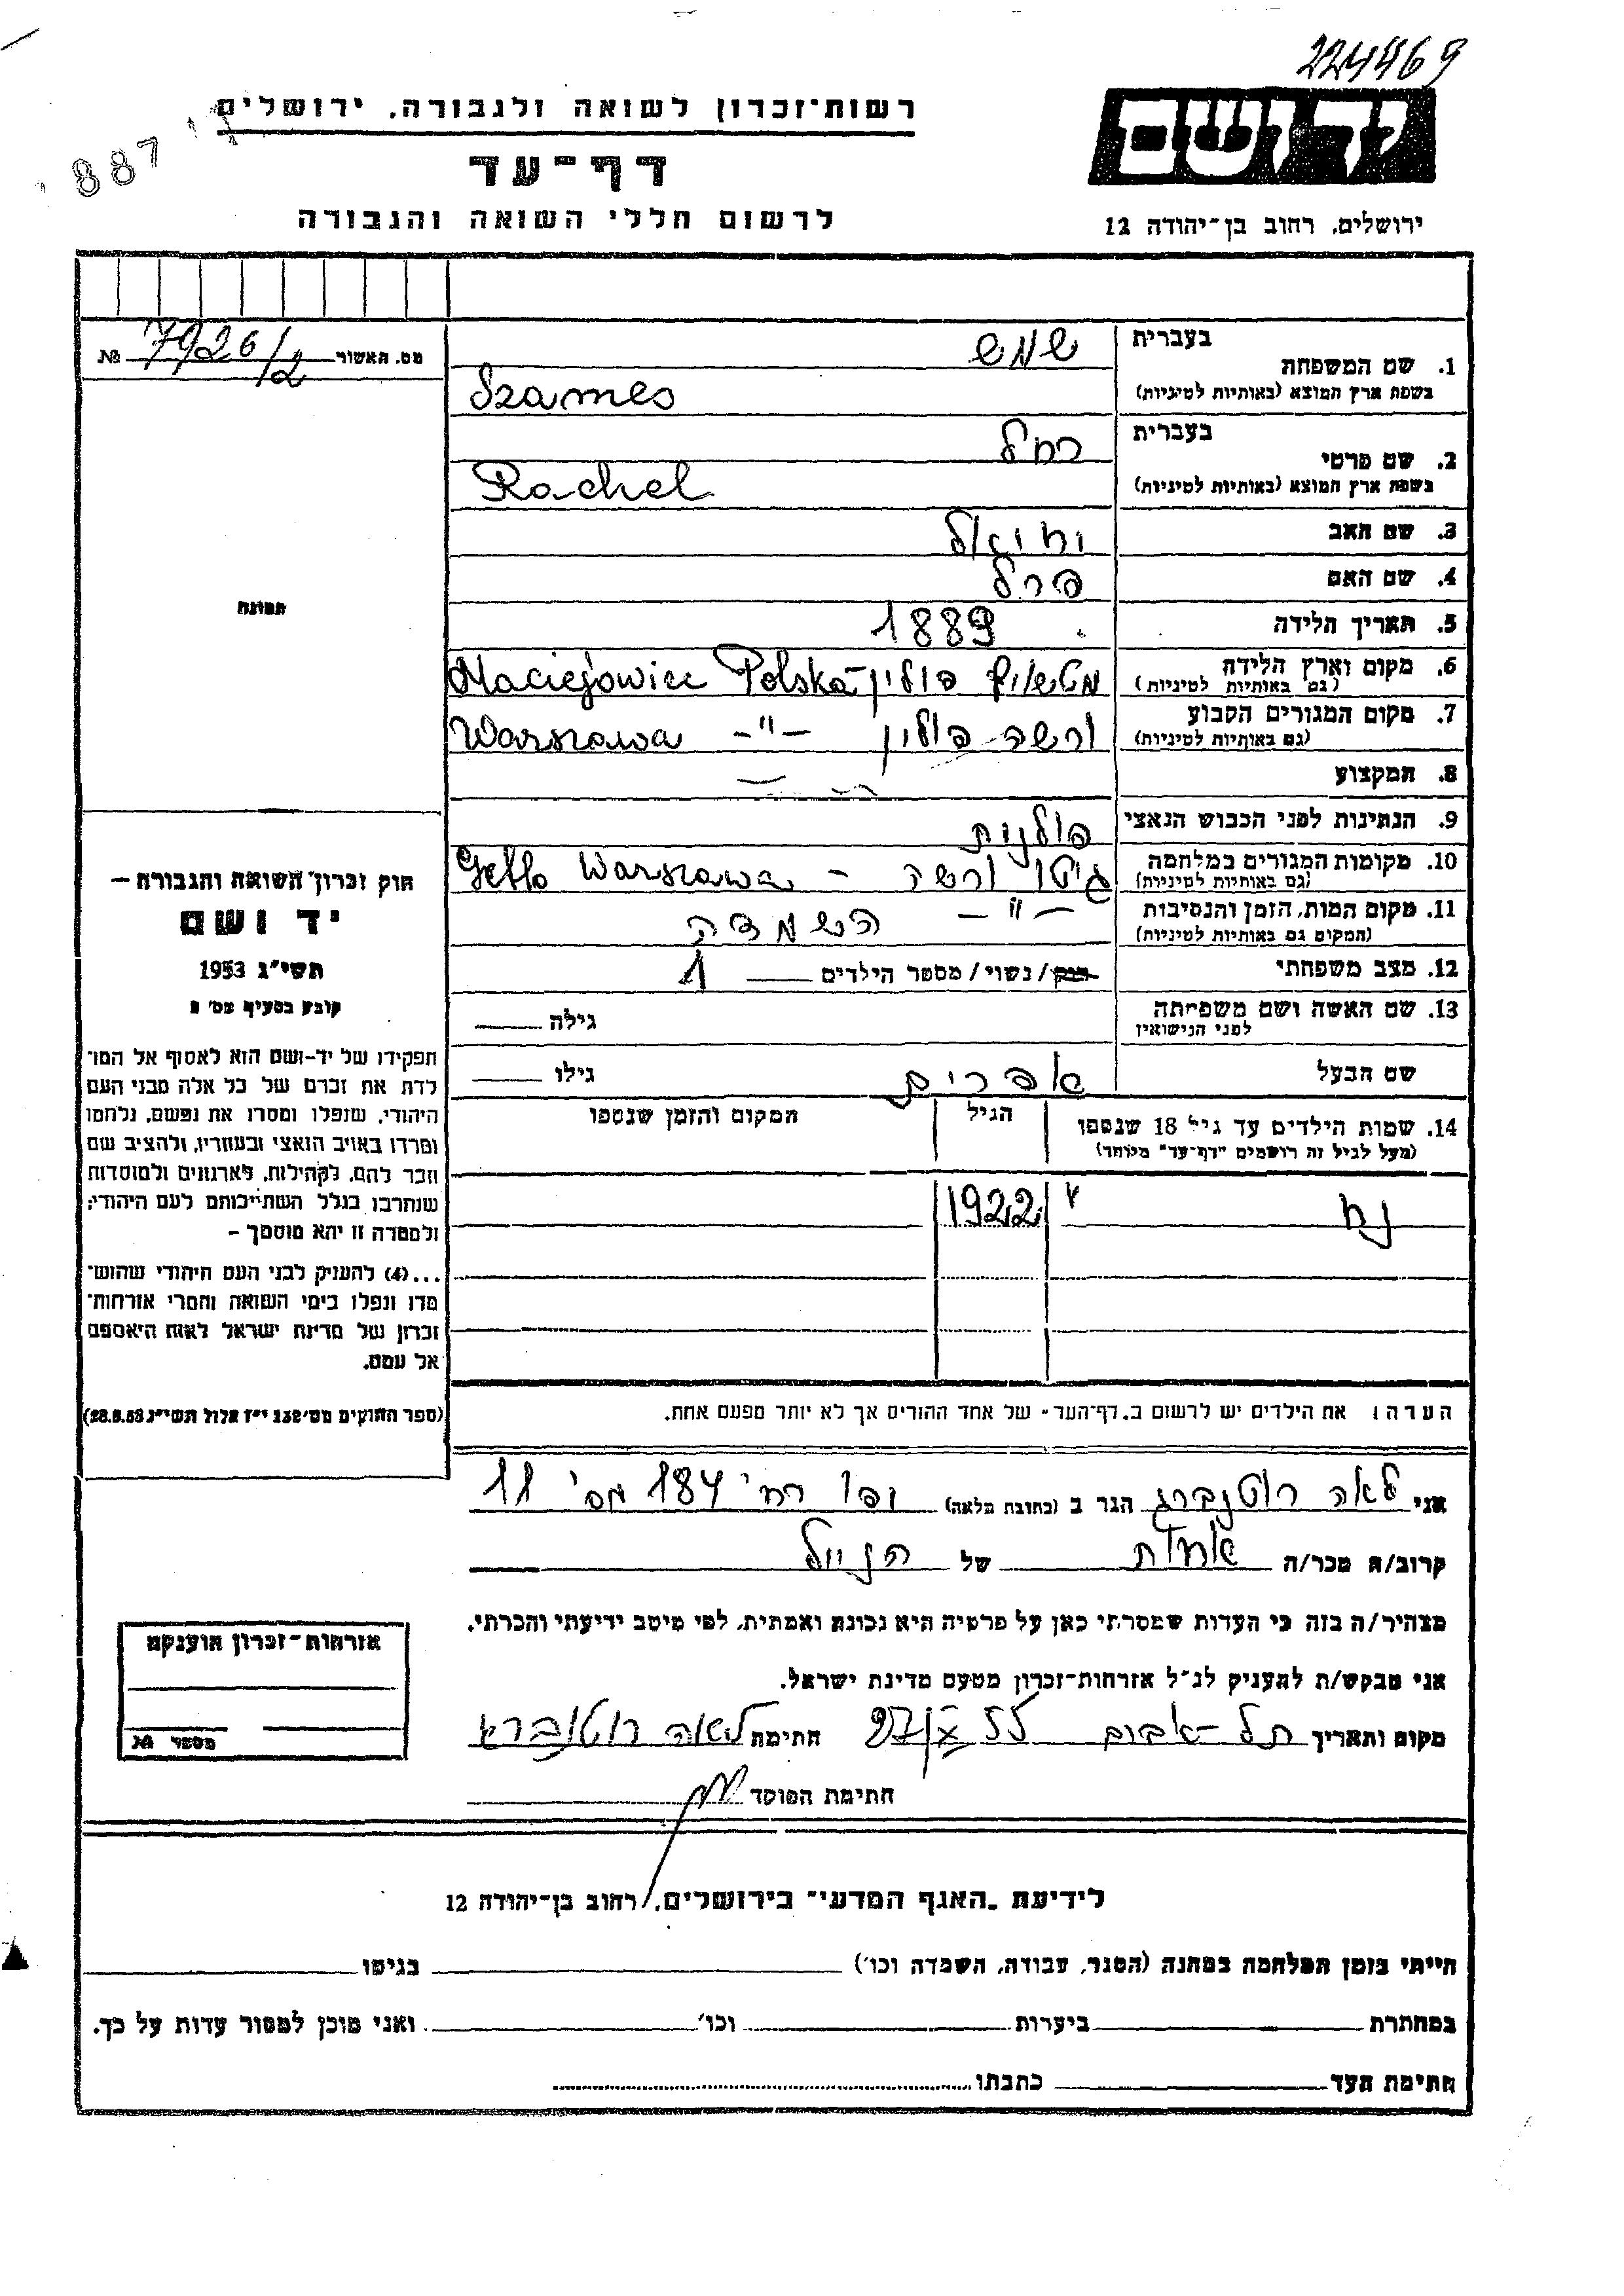 224469
יד ושם
ירושלים. רחוב בן־יהודה 12
רשות־זכרון לשואה ולגבורה. ירושלים
דף־עד
לרשום חללי השואה והגבורה
887
מס. האשור 7926/2 №
תמונה
חוק זכרון השואה והגבורה —
יד ושם
תשי״ג 1953
קובע בסעיף מס׳ 2
תפקידו של יד-ושם הוא לאסוף אל המו־
לדת את זכרם של כל אלה מבני העם
היהודי, שנפלו ומסרו את נפשם, נלחמו
ומרדו באויב הנאצי ובעוזריו, ולהציב שם
וזכר להם, לקהילות, לארגונים ולמוסדות
שנחרבו בגלל השתייכותם לעם היהודי;
ולמטרה זו יהא מוסמך —
...(4) להעניק לבני העם היהודי שהוש־
מדו ונפלו בימי השואה והמרי אזרחות־
זכרון של מדינת ישראל לאות היאספם
אל עמם.
(ספר החוקים מס׳ 132 י״ז אלול תשי״ג 28.8.53)
בעברית שמש
1. שם המשפחה
בשפת ארץ המוצא (באותיות לטיניות) Szames
בעברית רחל
2. שם פרטי
בשפת ארץ המוצא (באותיות לטיניות) Rachel
3. שם האב יחיאל
4. שם האם פרל
5. תאריך הלידה 1889
6. מקום וארץ הלידה Maciejowiec Polska - פולין
(גם באותיות לטיניות)
7. מקום המגורים הקבוע ורשה פולין -"- Warszawa
(גם באותיות לטיניות)
8. המקצוע —
9. הנתינות לפני הכבוש הנאצי פולנית
10. מקומות המגורים במלחמה גיטו ורשה - Getto Warszawa
(גם באותיות לטיניות)
11. מקום המות, הזמן והנסיבות -"- השמדה
(המקום גם באותיות לטיניות)
12. מצב משפחתי רווק/נשוי/מספר הילדים 1
13. שם האשה ושם משפחתה גילה
לפני הנישואין
שם הבעל אפרים גילו
14. שמות הילדים עד גיל 18 שנספו הגיל המקום והזמן שנספו
(מעל לגיל זה רושמים "דף־עד" מיוחד)
נח 1922
הערה: את הילדים יש לרשום ב„דף־העד״ של אחד ההורים אך לא יותר מפעם אחת.
אני לאה רוטנברג הגר ב (כתובת מלאה) יפו רח׳ 184 מס׳ 11
קרוב/ה מכר/ה אחות של הנ״ל
מצהיר/ה בזה כי העדות שמסרתי כאן על פרטיה היא נכונה ואמתית, לפי מיטב ידיעתי והכרתי.
אני מבקש/ת להעניק לנ״ל אזרחות־זכרון מטעם מדינת ישראל.
מקום ותאריך תל-אביב 27/X 55 חתימה לאה רוטנברג
חתימת הפוקד
אזרחות־זכרון הוענקה
מספר №
לידיעת „האגף המדעי״ בירושלים, רחוב בן־יהודה 12
הייתי בזמן המלחמה במחנה (הסגר, עבודה, השמדה וכו׳) בגיטו
במחתרת ביערות וכו׳ ואני מוכן למסור עדות על כך.
חתימת העד כתבתו